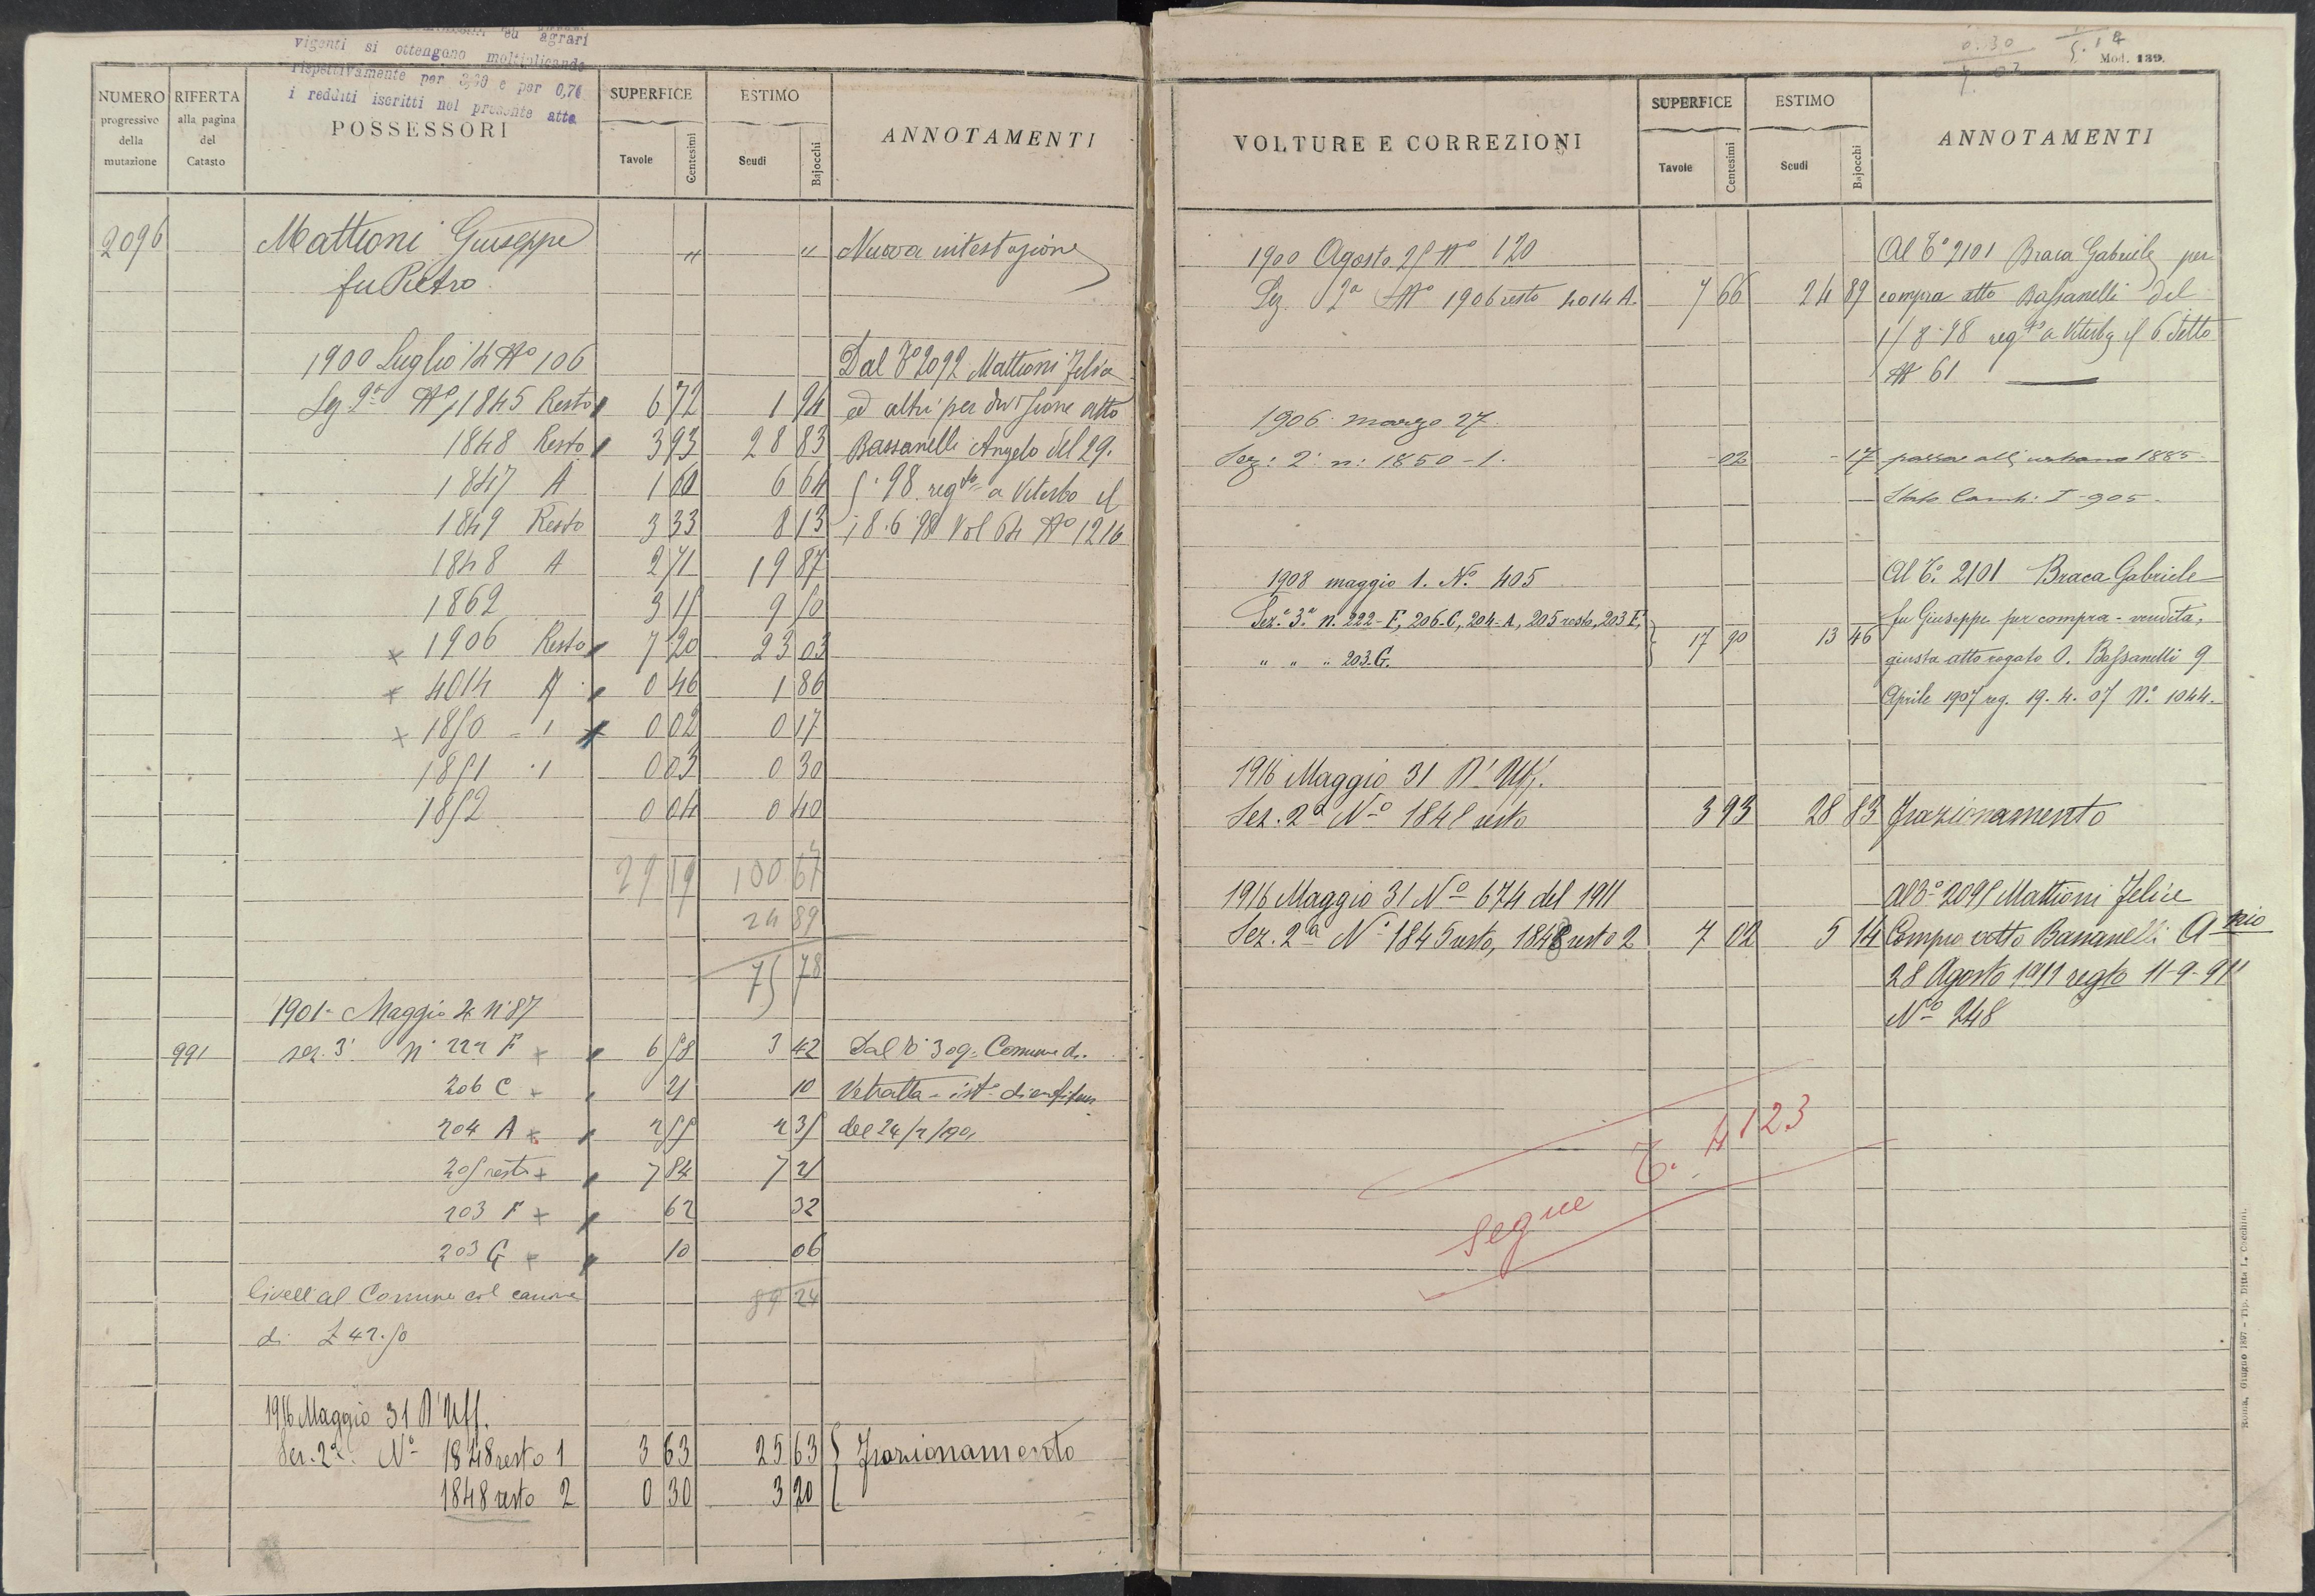 vigenti si ottengono moltiplicando
rispettivamente per 3,20 e per 0,76
i redditi iscritti nel presente atto
NUMERO progressivo della mutazione
RIFERTA alla pagina del Catasto
POSSESSORI
SUPERFICE
Tavole Centesimi
ESTIMO
Scudi Bajocchi
ANNOTAMENTI
2096 Mattioni Giuseppe " " Nuova intestazione
fu Pietro
1900 Luglio 14 No 106 Dal To 2092 Mattioni Felice
Sez 2a No 1845 Resto 6 72 1 94 ed altri per divisione atto
1848 Resto 3 93 28 83 Bassanelli Angelo del 29.
1847 A 1 60 6 64 5.98 regto a Viterbo il
1849 Resto 3 33 8 13 18.6.98 Vol 64 No 1216
1848 A 2 71 19 87
1862 3 15 9 50
x 1906 Resto 7 20 23 03
x 4014 A 0 46 1 86
x 1850 - 1 0 02 0 17
1851 . 1 0 03 0 30
1852 0 04 0 40
29 19 100 67
24 89
75 78
1901 - Maggio 4 N 87
991 sez. 3a N. 222 F x 6 58 3 42 Dal To 309 Comune di
206 C x 21 10 Vetralla - isto di enfiteusi
204 A x 2 55 2 35 del 24/2/1901
205 resto x 7 84 7 21
203 F x 62 32
203 G x 10 06
Livell. al Comune col canone 89 24
di £ 42.50
1916 Maggio 31 D'Uff.
Sez. 2a No 1848 resto 1 3 63 25 63 Frazionamento
1848 resto 2 0 30 3 20
0.30
7.02
5.14
Mod. 139.
VOLTURE E CORREZIONI
SUPERFICE
Tavole Centesimi
ESTIMO
Scudi Bajocchi
ANNOTAMENTI
1900 Agosto 25 No 120 Al To 2101 Braca Gabriele per
Sez 2a No 1906 resto 4014 A. 7 66 24 89 compra atto Bassanelli del
15 8.98 regto a Viterbo il 6 detto
No 61
1906 marzo 27.
Sez: 2a n: 1850-1. - 02 - 17 passa all'urbano 1885
Stato Camb: I - 905 -
1908 maggio 1. No. 405 Al To. 2101 Braca Gabriele
Sez.a 3.a n. 222-F, 206-C, 204-A, 205 resto, 203 F, fu Giuseppe per compra-vendita,
" " " 203.G. 17 90 13 46 giusta atto rogato A. Bassanelli 9
Aprile 1907 reg. 19.4.07 No. 1044.
1916 Maggio 31 D'Uff.
Sez. 2a No 1848 resto 3 93 28 83 Frazionamento
1916 Maggio 31 No 674 del 1911 Al To 2095 Mattioni Felice
Sez. 2a No 1845 resto, 1848 resto 2 7 02 5 14 Compra atto Bassanelli Anio
28 Agosto 1911 regto 11-9-911
No 248
Segue T. 4123
Roma, Giugno 1897 - Tip. Ditta L. Cecchini.